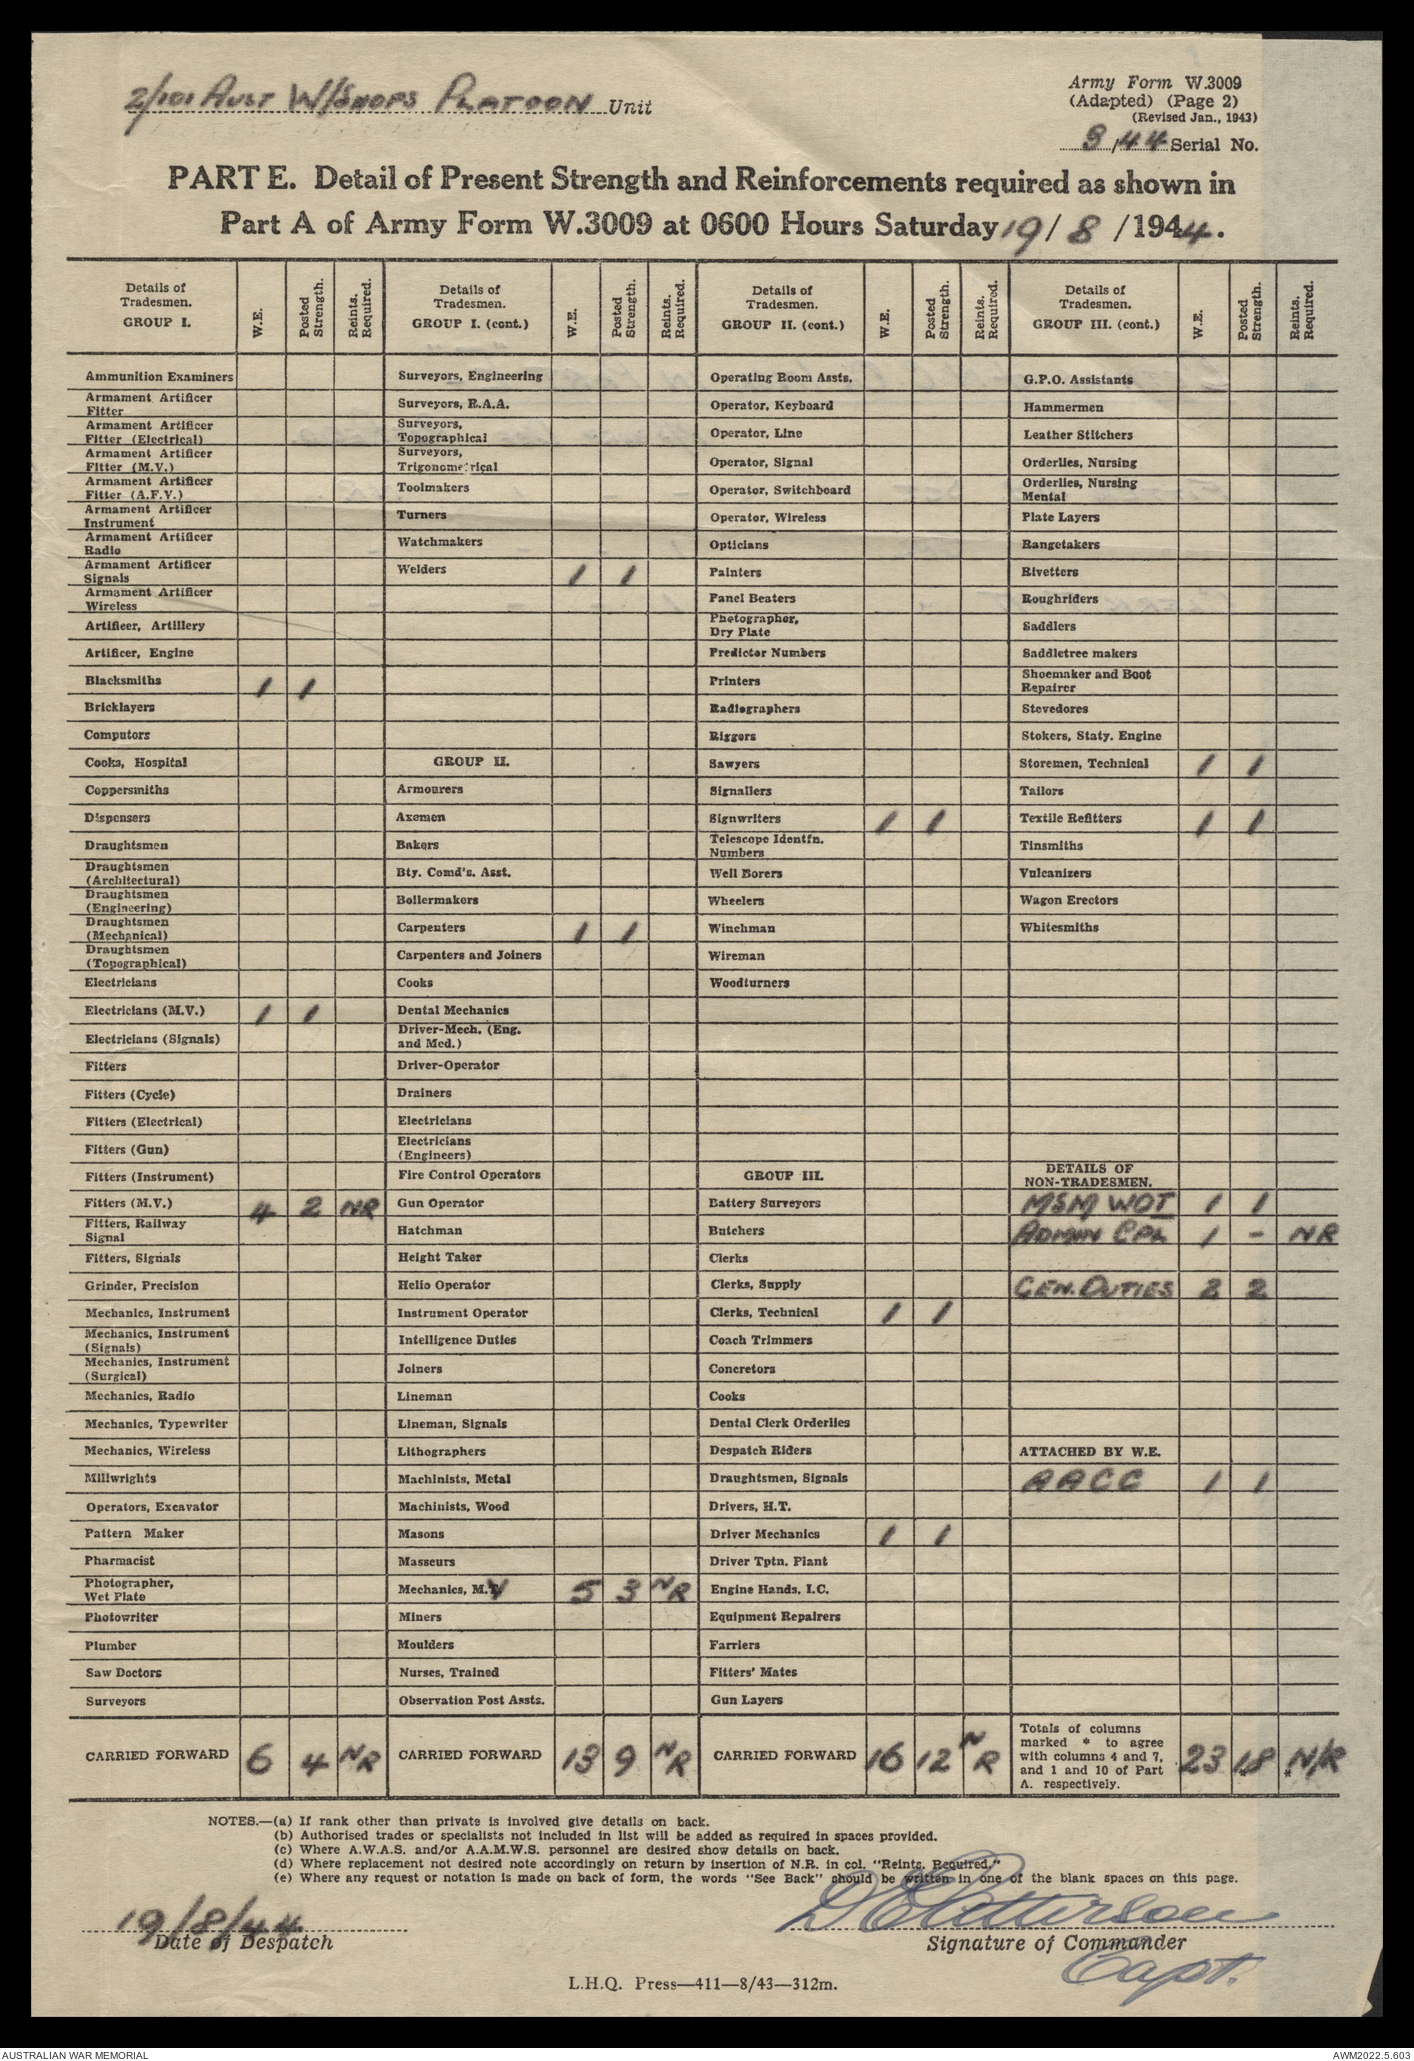 2/101 AUST W/SHOPS PLATOON Unit
Army Form W.3009
(Adapted) (Page 2)
(Revised Jan., 1943)
3/44 Serial No.
PART E. Detail of Present Strength and Reinforcements required as shown in
Part A of Army Form W.3009 at 0600 Hours Saturday 19/ 8 /1944.
Details of Tradesmen. GROUP I. W.E. Posted Strength. Reints. Required.
Ammunition Examiners
Armament Artificer Fitter
Armament Artificer Fitter (Electrical)
Armament Artificer Fitter (M.V.)
Armament Artificer Fitter (A.F.V.)
Armament Artificer Instrument
Armament Artificer Radio
Armament Artificer Signals
Armament Artificer Wireless
Artificer, Artillery
Artificer, Engine
Blacksmiths 1 1
Bricklayers
Computors
Cooks, Hospital
Coppersmiths
Dispensers
Draughtsmen
Draughtsmen (Architectural)
Draughtsmen (Engineering)
Draughtsmen (Mechanical)
Draughtsmen (Topographical)
Electricians
Electricians (M.V.) 1 1
Electricians (Signals)
Fitters
Fitters (Cycle)
Fitters (Electrical)
Fitters (Gun)
Fitters (Instrument)
Fitters (M.V.) 4 2 NR
Fitters, Railway Signal
Fitters, Signals
Grinder, Precision
Mechanics, Instrument
Mechanics, Instrument (Signals)
Mechanics, Instrument (Surgical)
Mechanics, Radio
Mechanics, Typewriter
Mechanics, Wireless
Millwrights
Operators, Excavator
Pattern Maker
Pharmacist
Photographer, Wet Plate
Photowriter
Plumber
Saw Doctors
Surveyors
CARRIED FORWARD 6 4 NR
Details of Tradesmen. GROUP I. (cont.) W.E. Posted Strength. Reints. Required.
Surveyors, Engineering
Surveyors, R.A.A.
Surveyors, Topographical
Surveyors, Trigonometrical
Toolmakers
Turners
Watchmakers
Welders 1 1
GROUP II.
Armourers
Axemen
Bakers
Bty. Comd's. Asst.
Boilermakers
Carpenters 1 1
Carpenters and Joiners
Cooks
Dental Mechanics
Driver-Mech. (Eng. and Med.)
Driver-Operator
Drainers
Electricians
Electricians (Engineers)
Fire Control Operators
Gun Operator
Hatchman
Height Taker
Helio Operator
Instrument Operator
Intelligence Duties
Joiners
Lineman
Lineman, Signals
Lithographers
Machinists, Metal
Machinists, Wood
Masons
Masseurs
Mechanics, M.V 5 3 NR
Miners
Moulders
Nurses, Trained
Observation Post Assts.
CARRIED FORWARD 13 9 NR
Details of Tradesmen. GROUP II. (cont.) W.E. Posted Strength. Reints. Required.
Operating Room Assts.
Operator, Keyboard
Operator, Line
Operator, Signal
Operator, Switchboard
Operator, Wireless
Opticians
Painters
Panel Beaters
Photographer, Dry Plate
Predictor Numbers
Printers
Radiographers
Riggers
Sawyers
Signallers
Signwriters 1 1
Telescope Identfn. Numbers
Well Borers
Wheelers
Winchman
Wireman
Woodturners
GROUP III.
Battery Surveyors
Butchers
Clerks
Clerks, Supply
Clerks, Technical 1 1
Coach Trimmers
Concretors
Cooks
Dental Clerk Orderlies
Despatch Riders
Draughtsmen, Signals
Drivers, H.T.
Driver Mechanics 1 1
Driver Tptn. Plant
Engine Hands, I.C.
Equipment Repairers
Farriers
Fitters' Mates
Gun Layers
CARRIED FORWARD 16 12 NR
Details of Tradesmen. GROUP III. (cont.) W.E. Posted Strength. Reints. Required.
G.P.O. Assistants
Hammermen
Leather Stitchers
Orderlies, Nursing
Orderlies, Nursing Mental
Plate Layers
Rangetakers
Rivetters
Roughriders
Saddlers
Saddletree makers
Shoemaker and Boot Repairer
Stevedores
Stokers, Staty. Engine
Storemen, Technical 1 1
Tailors
Textile Refitters 1 1
Tinsmiths
Vulcanizers
Wagon Erectors
Whitesmiths
DETAILS OF NON-TRADESMEN.
MSM WOT 1 1
ADMIN CPL 1 - NR
GEN. DUTIES 2 2
ATTACHED BY W.E.
AACC 1 1
Totals of columns marked * to agree with columns 4 and 7, and 1 and 10 of Part A. respectively. 23 18 * * N/R
NOTES.—(a) If rank other than private is involved give details on back.
(b) Authorised trades or specialists not included in list will be added as required in spaces provided.
(c) Where A.W.A.S. and/or A.A.M.W.S. personnel are desired show details on back.
(d) Where replacement not desired note accordingly on return by insertion of N.R. in col. "Reints. Required."
(e) Where any request or notation is made on back of form, the words "See Back" should be written in one of the blank spaces on this page.
19/8/44
Date of Despatch
Patterson
Signature of Commander
Capt.
L.H.Q. Press—411—8/43—312m.
AUSTRALIAN WAR MEMORIAL
AWM2022.5.603